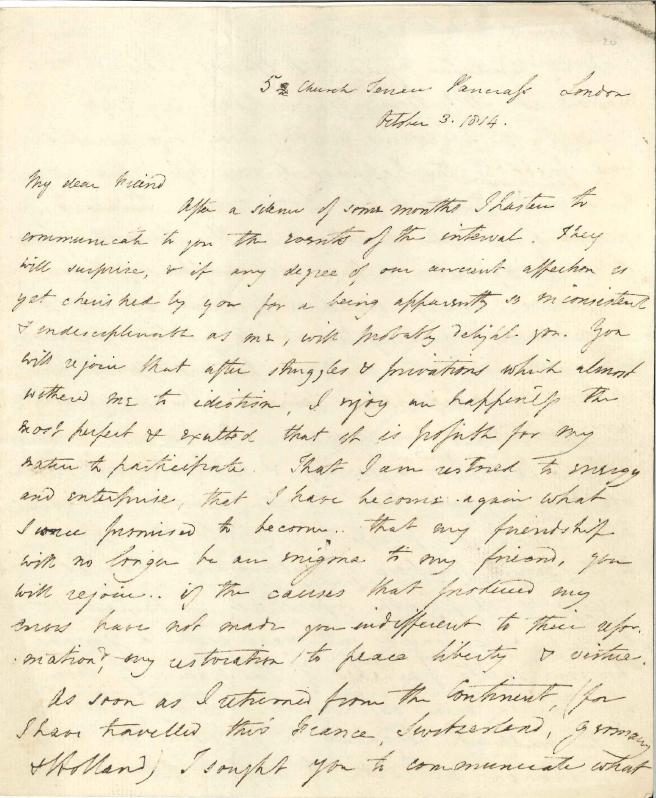 5 Church Terrace Pancrass London
October 3. 1814.
My dear Friend
After a silence of some months I hasten to
communicate to you the events of the interval. They
will surprise, & if any degree of our ancient affection is
yet cherished by you for a being apparently so inconsistent
& indisciplinable as me, will probably delight you. You
will rejoice that after struggles & privations which almost
withered me to idiotism, I enjoy an happiness the
most perfect & exalted that it is possible for my
nature to participate. That I am restored to energy
and enterprise, that I have become again what
I once promised to become.. that my friendship
will no longer be an enigma to my friend, you
will rejoice.. if the causes that produced my
errors have not made you indifferent to their refor-
mation, my restoration to peace liberty & virtue.
As soon as I returned from the Continent, (for
I have travelled thro' France, Switzerland, Germany
& Holland) I sought you to communicate what